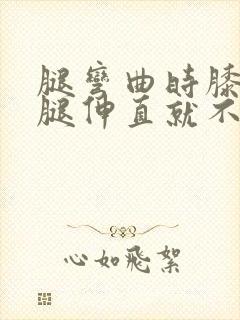 腿弯曲时膝
腿伸直就不
心如飛絮